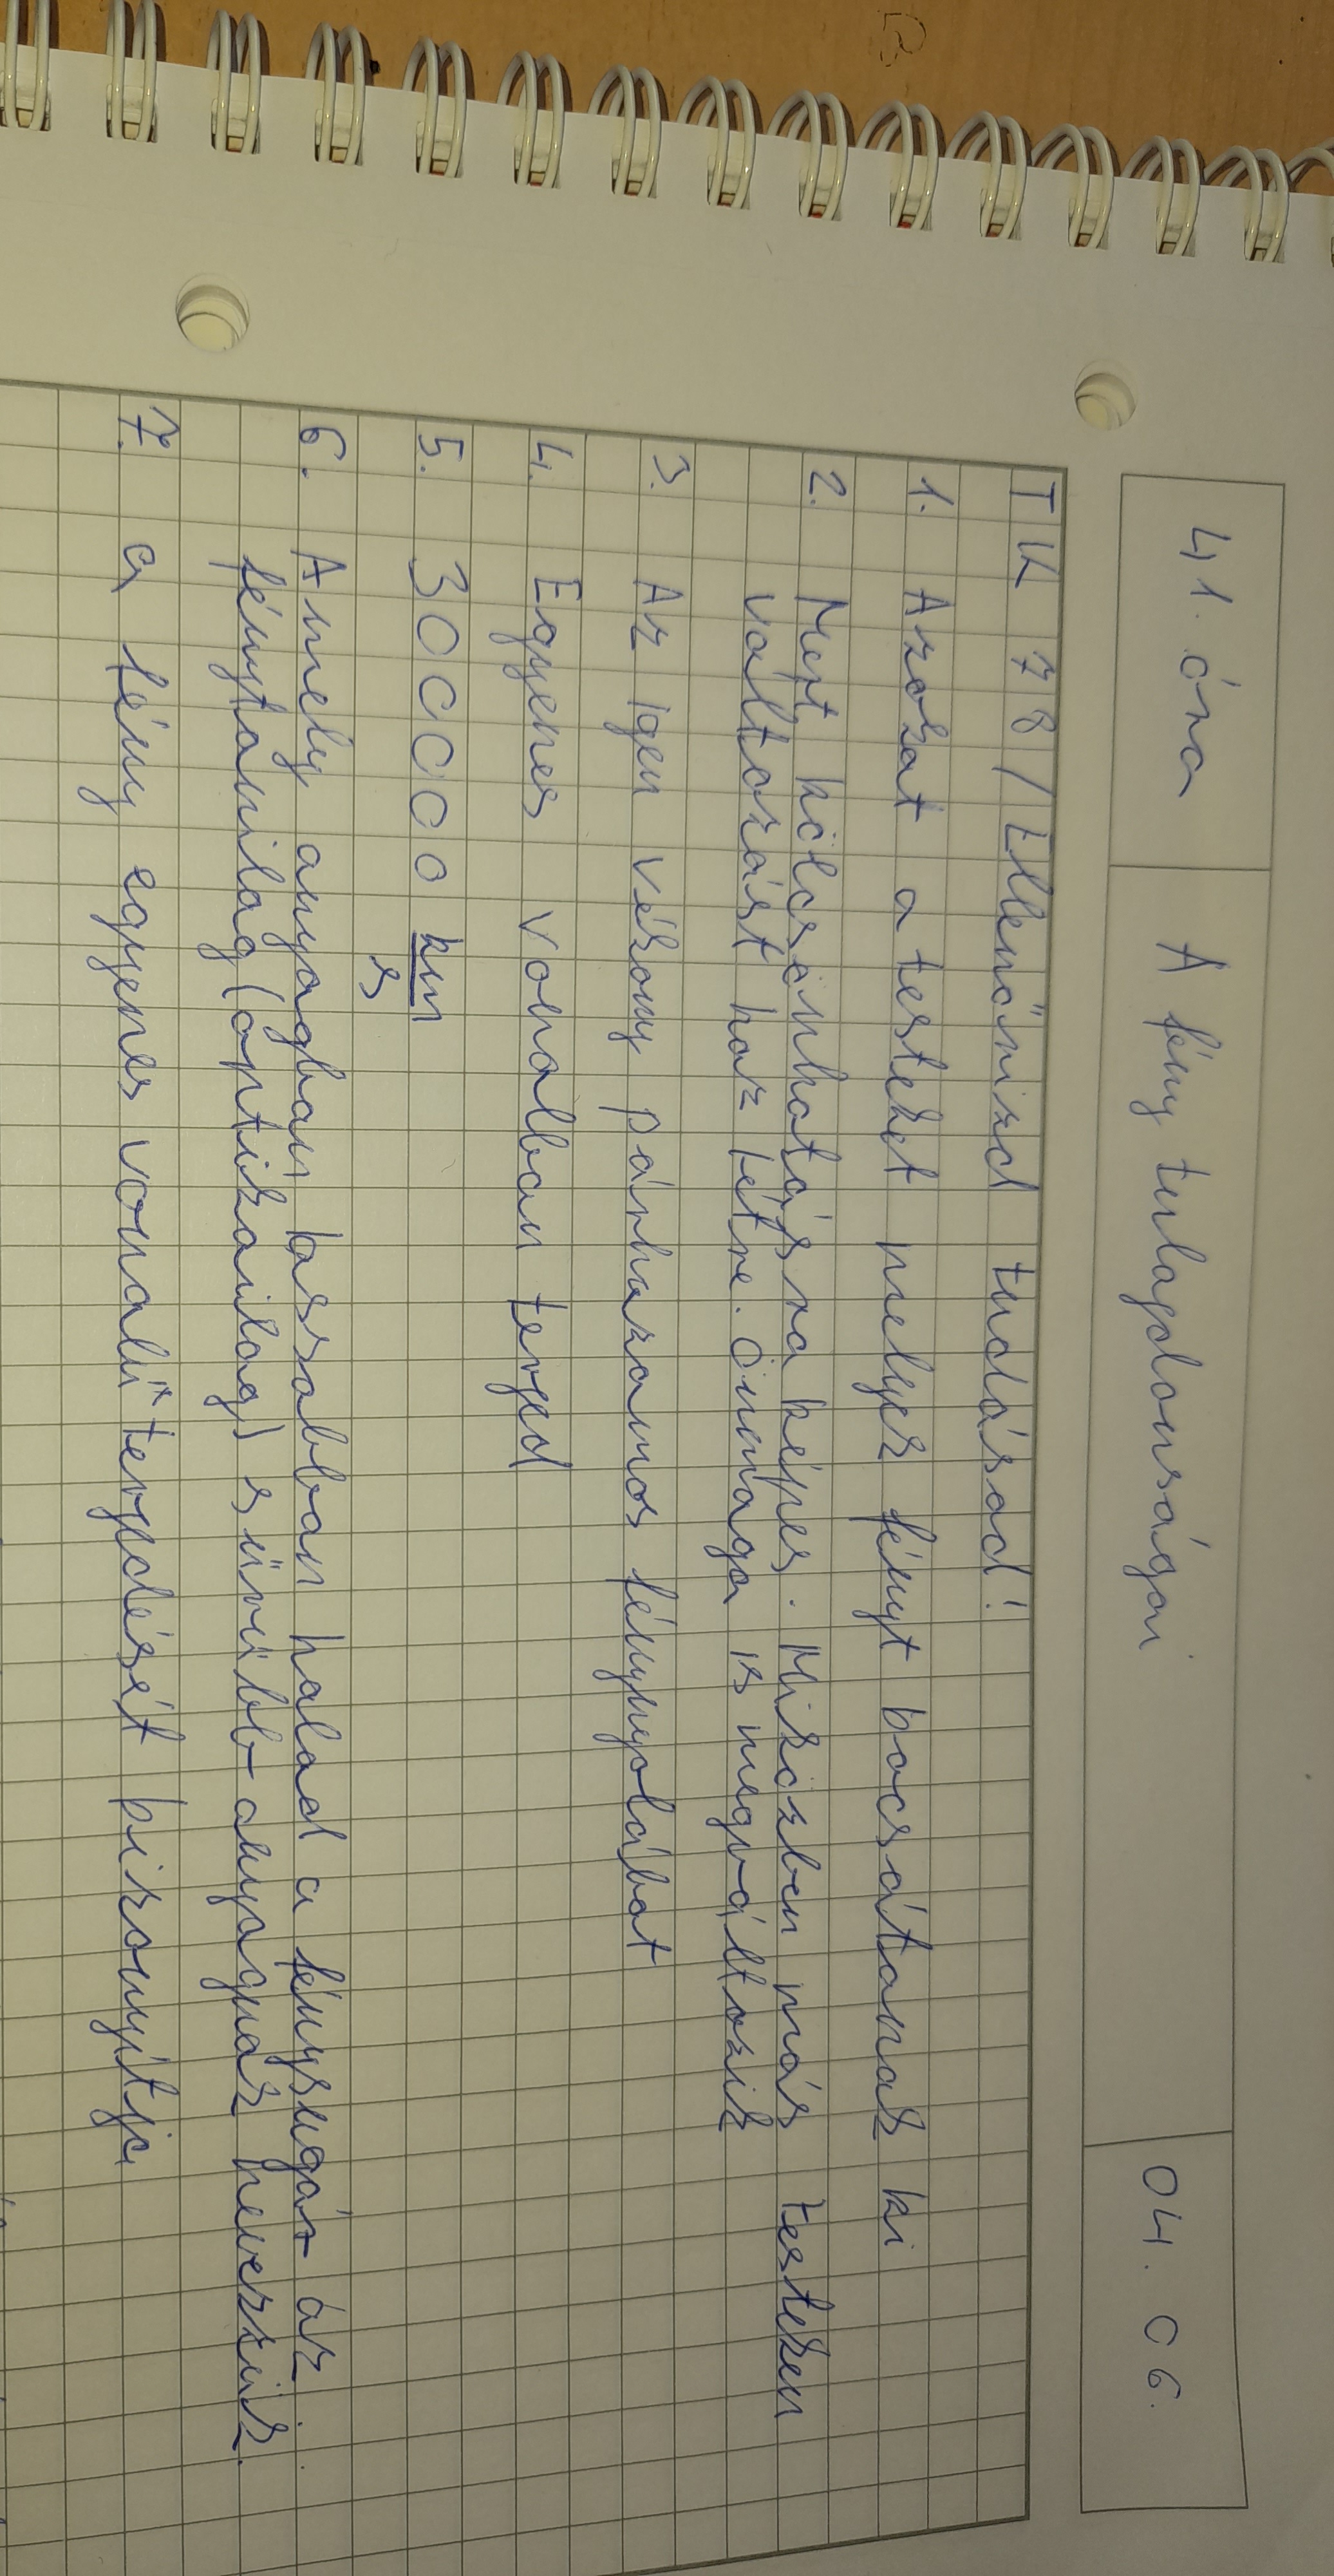 41. óra
A fény tulajdonságai
04. 06.
TK 78/Ellenőrizd tudásod!
1. Azokat a testeket melyek fényt bocsátanak ki
2. Mert kölcsönhatásra képes. Miközben más testeken
változást hoz létre. Önmaga is megváltozik
3. Az igen vékony párhuzamos fénynyalábot
4. Egyenes vonalban terjed
5. 300000 km
s
6. Amely anyagban lassabban halad a fénysugár az
fénytanilag (optikailag) sűrűbb anyagnak nevezzük.
7. a fény egyenes vonalú terjedését bizonyítja